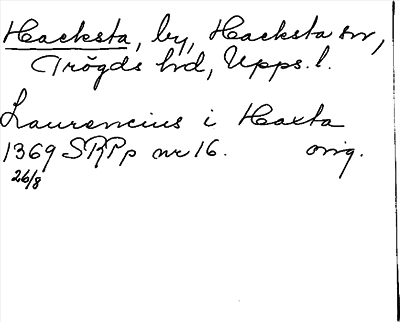 Hacksta, by, Hacksta sn,
Trögds hd, Upps. l.
Laurencius i Haxta
1369 SRPp nr 16. orig.
26/8